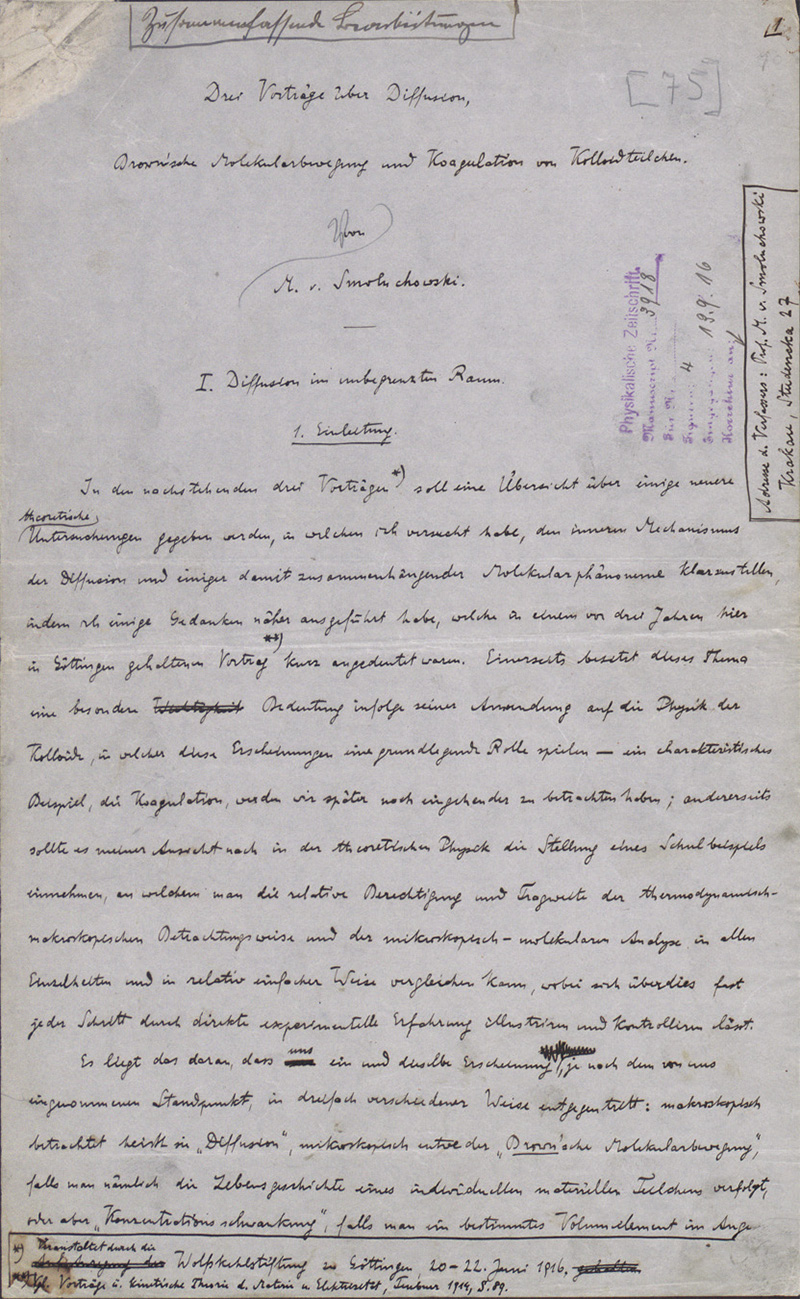 Zusammenfassende Bearbeitungen
1
[75]
Drei Vorträge über Diffusion,
Brown'sche Molekularbewegung und Koagulation von Kolloidteilchen.
Von
M. v. Smoluchowski.
Physikalische Zeitschrift.
Manuscript Nr. 3918
Zur Nr.
Signum: 4
Eingegangen: 13.9.16
Korrektur an
Adresse d. Verfassers: Prof. M. v. Smoluchowski
Krakau, Studencka 27
I. Diffusion im unbegrenzten Raum.
1. Einleitung.
In den nachstehenden drei Vorträgen*) soll eine Übersicht über einige neuere
theoretische
Untersuchungen gegeben werden, in welchen ich versucht habe, den inneren Mechanismus
der Diffusion und einiger damit zusammenhängender Molekularphänomene klarzustellen,
indem ich einige Gedanken näher ausgeführt habe, welche in einem vor drei Jahren hier
in Göttingen gehaltenen Vortrag**) kurz angedeutet waren. Einerseits besitzt dieses Thema
eine besondere Wichtigkeit Bedeutung infolge seiner Anwendung auf die Physik der
Kolloide, in welcher diese Erscheinungen eine grundlegende Rolle spielen — ein charakteristisches
Beispiel, die Koagulation, werden wir später noch eingehender zu betrachten haben; andererseits
sollte es meiner Ansicht nach in der theoretischen Physik die Stellung eines Schulbeispiels
einnehmen, an welchem man die relative Berechtigung und Tragweite der thermodynamisch-
makroskopischen Betrachtungsweise und der mikroskopisch-molekularen Analyse in allen
Einzelheiten und in relativ einfacher Weise vergleichen kann, wobei sich überdies fast
jeder Schritt durch direkte experimentelle Erfahrung illustriren und kontrolliren lässt.
Es liegt das daran, dass uns ein und dieselbe Erscheinung, je nach dem von uns
eingenommenen Standpunkt, in dreifach verschiedener Weise entgegentritt: makroskopisch
betrachtet heisst sie „Diffusion", mikroskopisch entweder „Brown'sche Molekularbewegung",
falls man nämlich die Lebensgeschichte eines individuellen materiellen Teilchens verfolgt,
oder aber „Konzentrationsschwankung", falls man ein bestimmtes Volumelement im Auge
*) Veranstaltet durch die
Wolfskehlstiftung zu Göttingen 20-22. Juni 1916.
**) Vgl. Vorträge ü. kinetische Theorie d. Materie u. Elektrizität, Teubner 1914, S. 89.